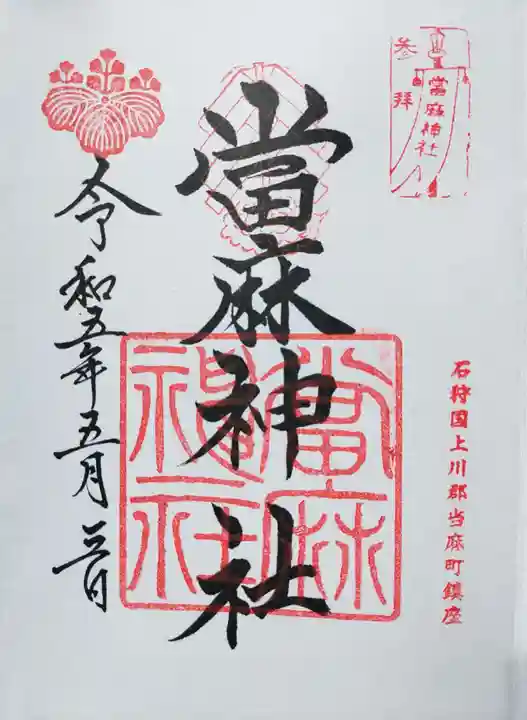 参拝
當麻神社
石狩国上川郡当麻町鎮座
當麻神社
當麻神社
令和五年五月三日